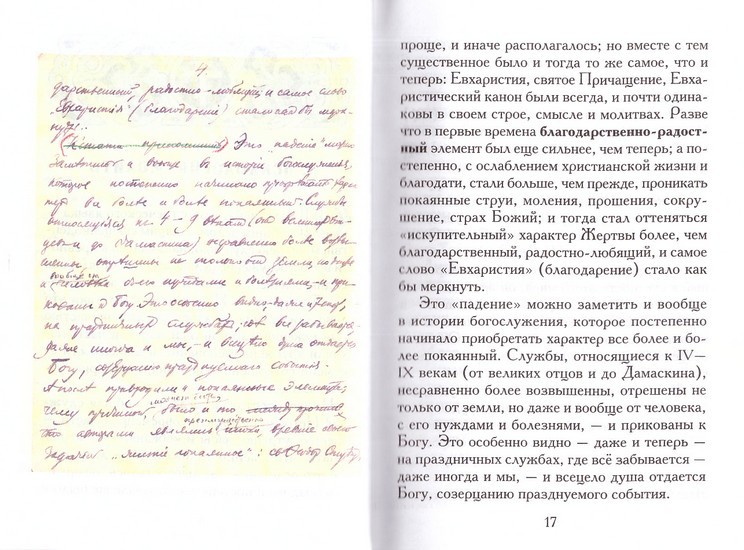 4.
дарственный, радостно-любящий, и самое слово
"Евхаристия" (благодарение) стало как бы мерк-
нуть..
Это "падение" можно
заметить и вообще в истории богослужения,
которое постепенно начинало приобретать харак
тер все более и более покаянный. Службы
относящіяся к 4–9 векам (от великих от
цев и до Дамаскина) несравненно более возвы-
шенны, отрешены не только от земли, но даже
вообще от
и человека с его нуждами и болезнями, – и при-
кованы к Богу. Это особенно видно – даже и теперь,
на праздничных службах, где все забывается,
даже иногда и мы, – и всецело душа отдается
Богу, созерцанию празднуемого события.
А после
чему
преимущественно
что авторами являлись
"житие покаянное":
проще, и иначе располагалось; но вместе с тем
существенное было и тогда то же самое, что и
теперь: Евхаристия, святое Причащение, Евха-
ристический канон были всегда, и почти одина-
ковы в своем строе, смысле и молитвах. Разве
что в первые времена благодарственно-радост-
ный элемент был еще сильнее, чем теперь; а по-
степенно, с ослаблением христианской жизни и
благодати, стали больше, чем прежде, проникать
покаянные струи, моления, прошения, сокру-
шение, страх Божий; и тогда стал оттеняться
«искупительный» характер Жертвы более, чем
благодарный, радостно-любящий, и самое
слово «Евхаристия» (благодарение) стало как
бы меркнуть.
Это «падение» можно заметить и вообще
в истории богослужения, которое постепенно
начинало приобретать характер все более и бо-
лее покаянный. Службы, относящиеся к IV—
IX векам (от великих отцов и до Дамаскина),
несравненно более возвышенны, отрешены не
только от земли, но даже и вообще от человека,
с его нуждами и болезнями, — и прикованы к
Богу. Это особенно видно — даже и теперь —
на праздничных службах, где всё забывается —
даже иногда и мы, — и всецело душа отдается
Богу, созерцанию празднуемого события.
17